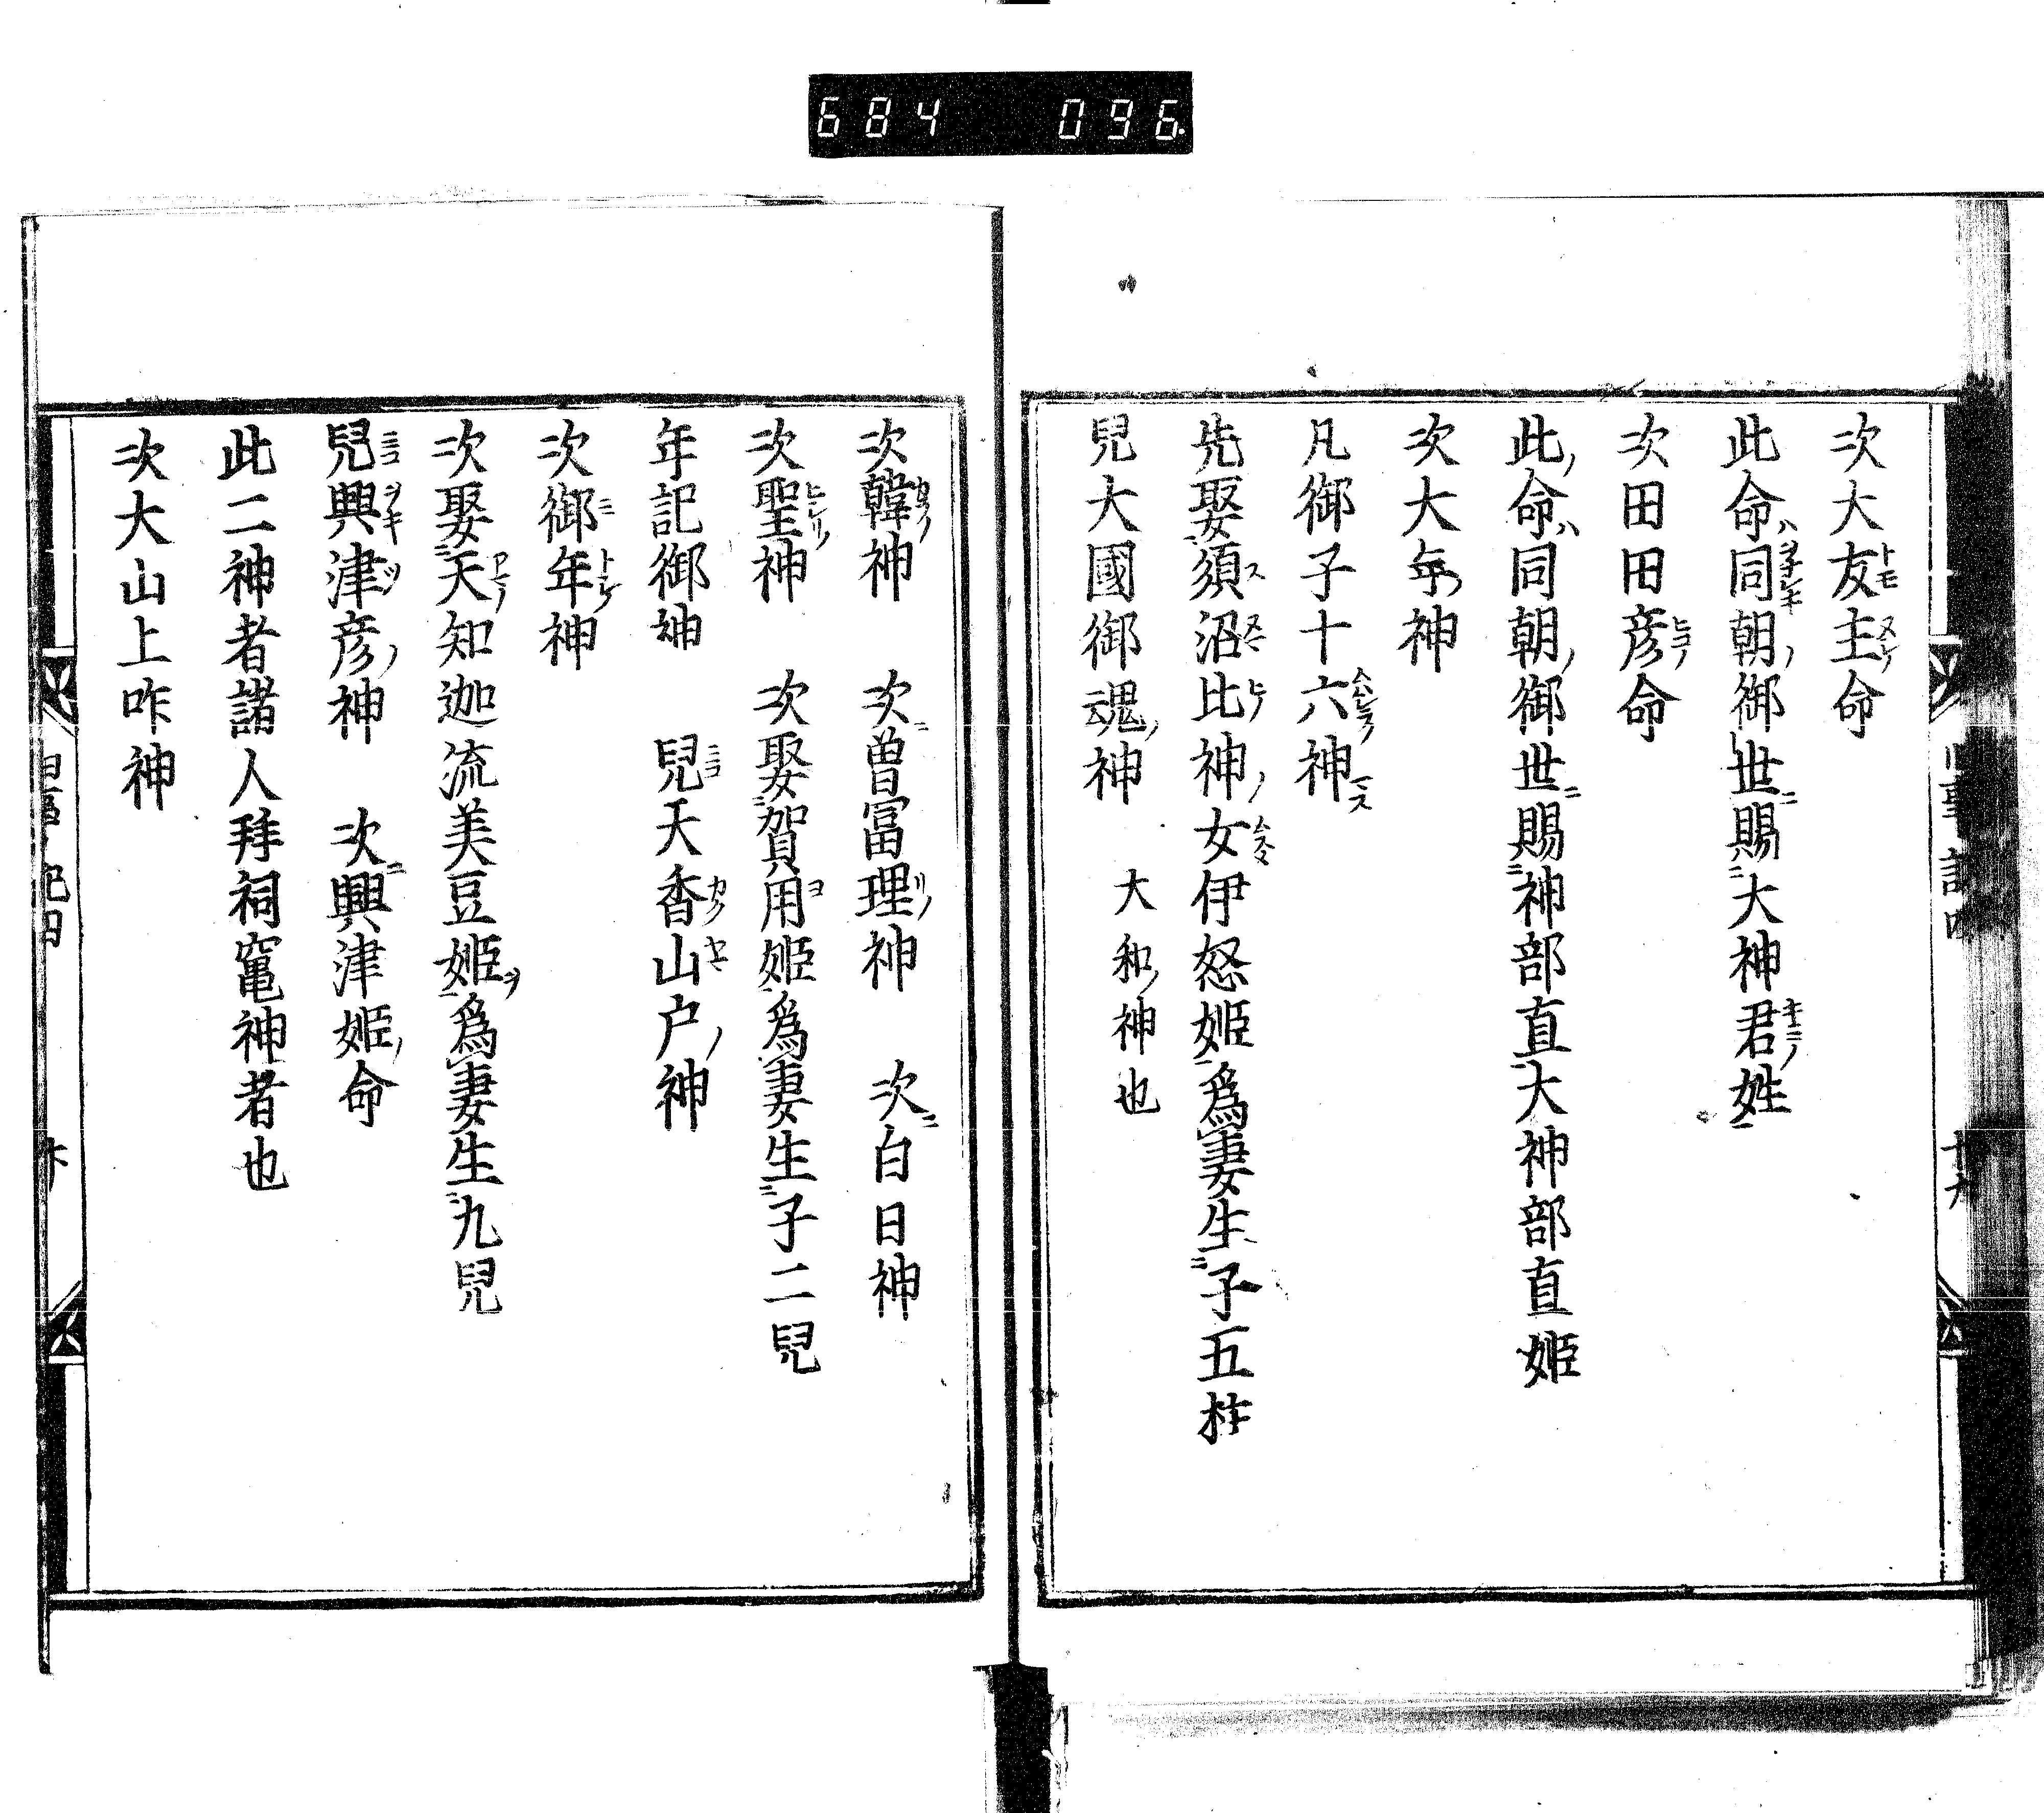 684 096
次大友主命
此命同朝御世賜大神君姓
次田田彦命
此命同朝御世賜神部直大神部直姬
次大年神
凡御子十六神
先娶須沼比神女伊怒姬爲妻生子五柱
兒大國御魂神 大和神也
次韓神 次曽富理神 次白日神
次聖神 次娶賀用姬爲妻生子二兒
年記御神 兒天香山戸神
次御年神
次娶天知迦流美豆姬爲妻生九兒
兒興津彦神 次興津姬命
此二神者諸人拜祠竃神者也
次大山上咋神